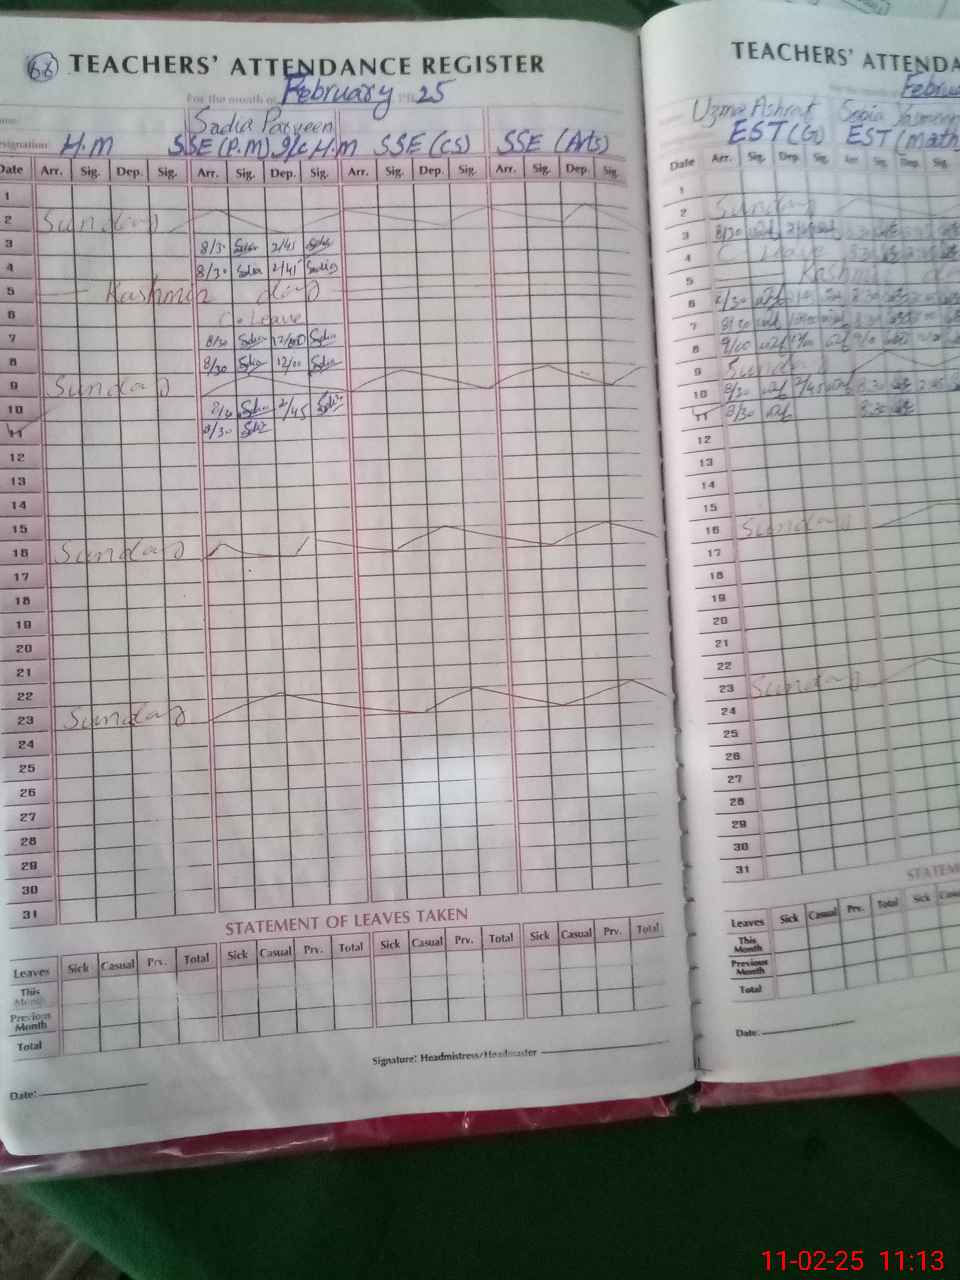 66 TEACHERS' ATTENDANCE REGISTER
For the month of February 25
Sadia Parveen
Designation H.M SSE (P.M) I/C H.M SSE (CS) SSE (Arts)
Date Arr. Sig. Dep. Sig. Arr. Sig. Dep. Sig. Arr. Sig. Dep. Sig. Arr. Sig. Dep. Sig.
1
2 Sunday
3 8/30 Sadia 2/45 Sadia
4 8/30 Sadia 2/45 Sadia
5 Kashmir day
6 C. Leave
7 8/30 Sadia 12/00 Sadia
8 8/30 Sadia 12/00 Sadia
9 Sunday
10 Sadia 2/45 Sadia
11 8/30 Sadia
12
13
14
15
16 Sunday
17
18
19
20
21
22
23 Sunday
24
25
26
27
28
29
30
31
STATEMENT OF LEAVES TAKEN
Leaves Sick Casual Prv. Total Sick Casual Prv. Total Sick Casual Prv. Total Sick Casual Prv. Total
This Month
Previous Month
Total
Signature: Headmistress/Headmaster
Date:
TEACHERS' ATTENDA
Februa
Uzma Ashraf Sobia Yasmeen
EST (G) EST (math
Date Arr. Sig. Dep. Sig. Arr. Sig. Dep. Sig.
1
2 Sunday
3 8/30
4 C Leave 8.30
5 Kashmir da
6 8.30
7 8/30 8.30
8 9/00
9 Sunday
10 8/30 2/45 8.30 2.45
11 8/30 8.30
12
13
14
15
16 Sunday
17
18
19
20
21
22
23 Sunday
24
25
26
27
28
29
30
31
STATEM
Leaves Sick Casual Prv. Total Sick Casu
This Month
Previous Month
Total
Date:
11-02-25 11:13